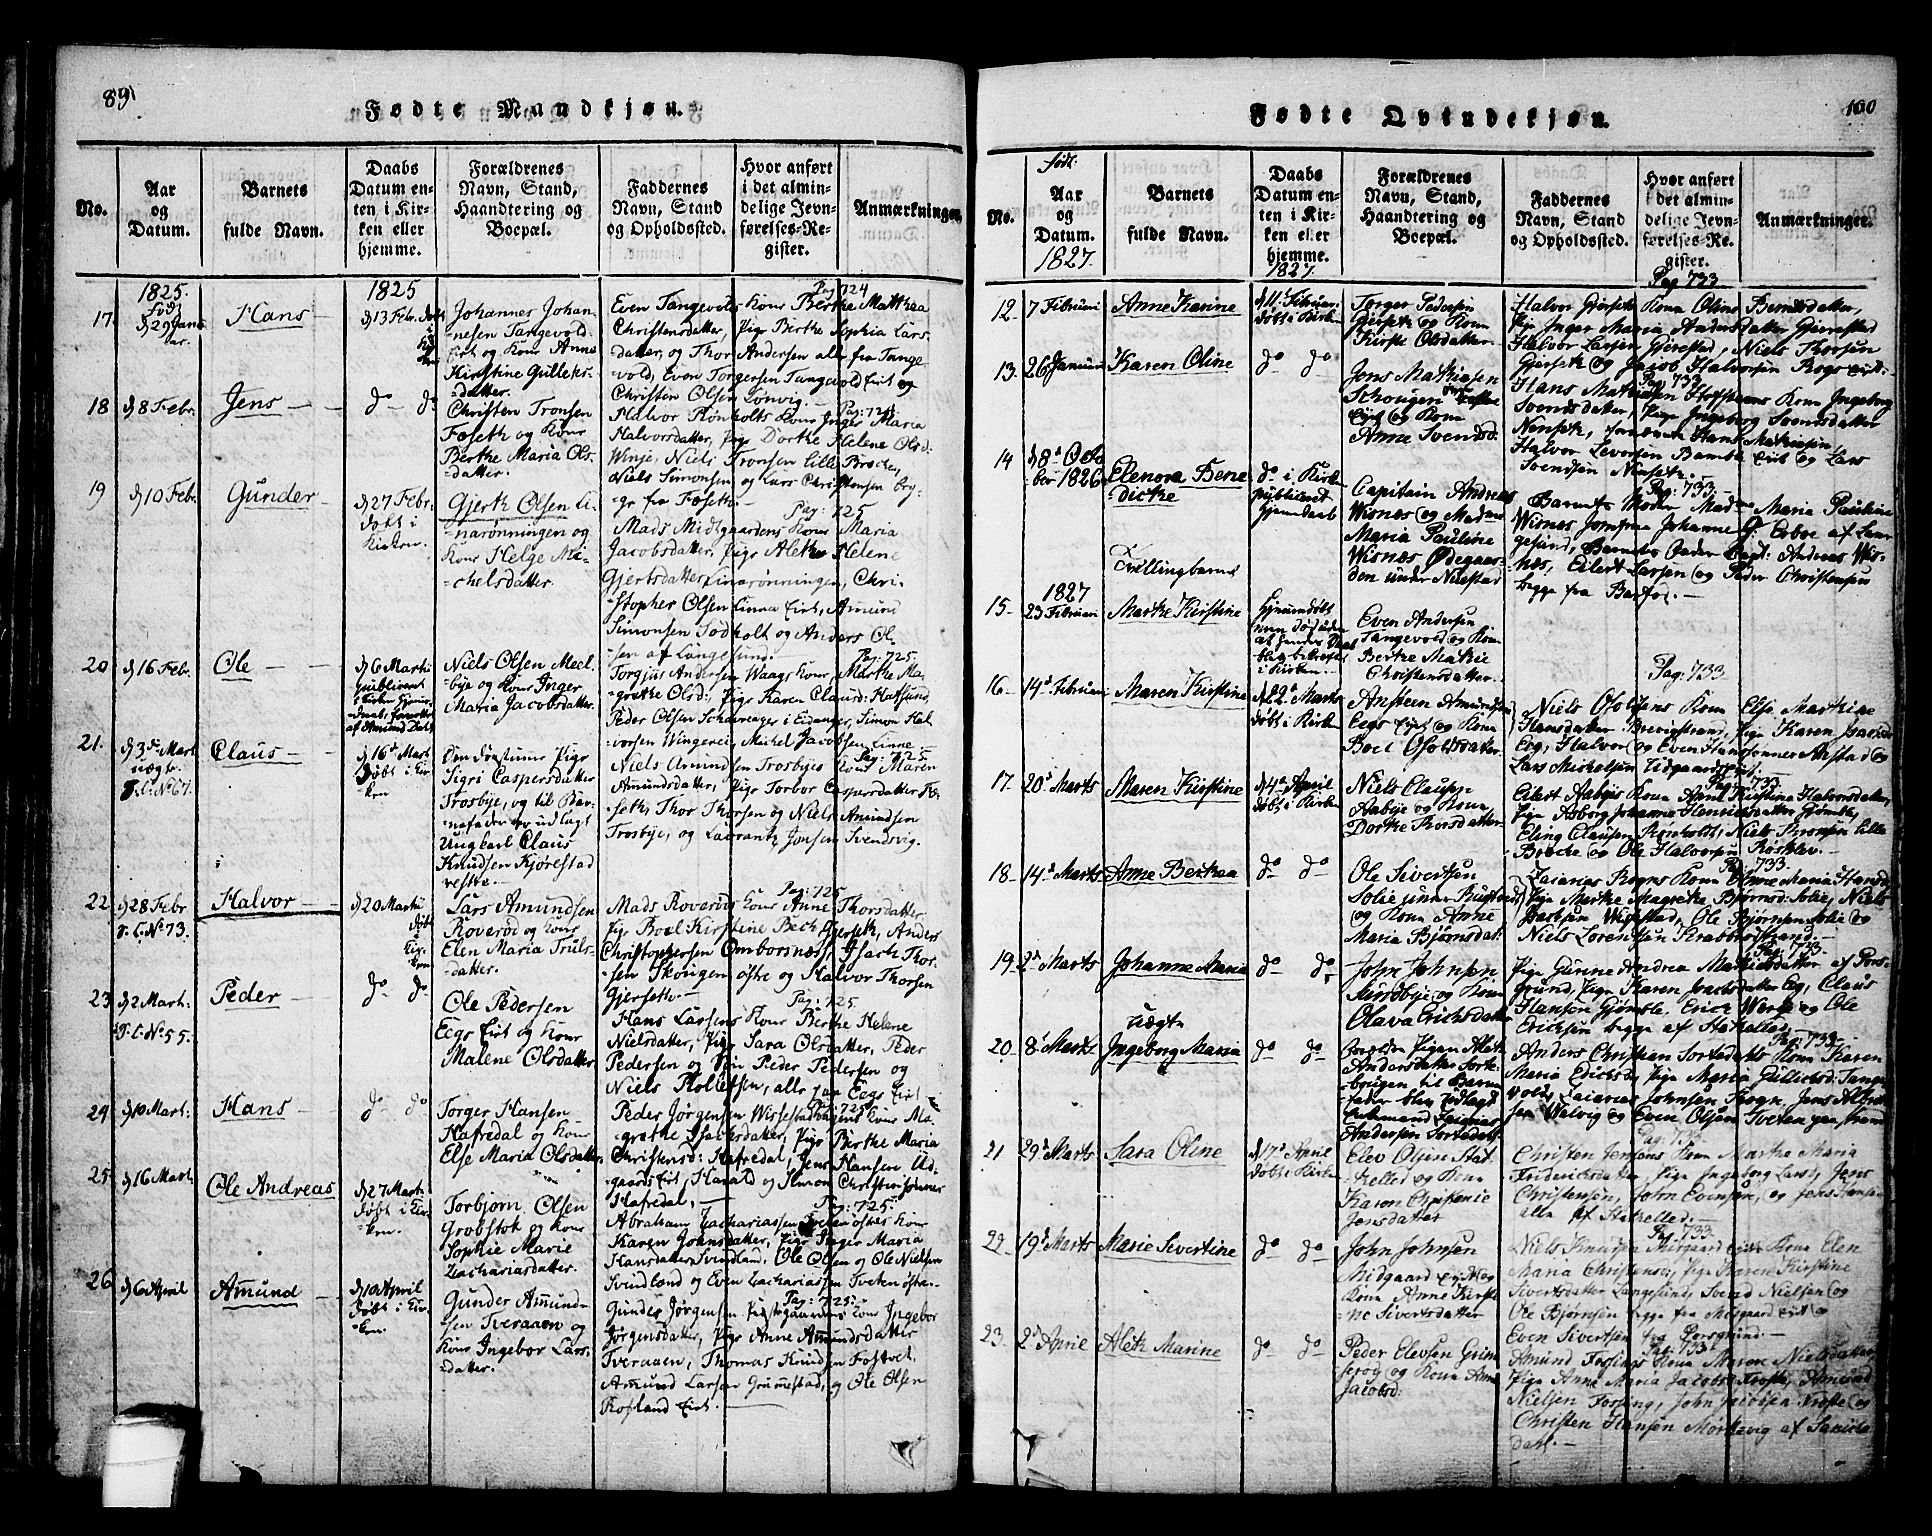 89
Fødte Mandkjøn.
No.
Aar
og
Datum.
Barnets
fulde Navn.
Daabs
Datum en-
ten i Kir-
ken eller
hjemme.
Forældrenes
Navn, Stand,
Haandtering og
Boepæl.
Faddernes
Navn, Stand
og Opholdssted.
Hvor anført
i det almin-
delige Jevn-
førelses-Re-
gister.
Anmærkninger.
1825.
Född
1825
17.
d 29 Janu
ar.
Hans
d 13 Febr. døbt
i
Johannes Johan-
nesen Tangevold-
Eirt og Kone Anne
Kirstine Gulleks-
datter.
Pag 724
Even Tangevolds Kone Berthe Matthea
Christensdatter, Pige Berthe Sophia Lars-
datter, og Thor Andersen alle fra Tange
vold, Even Torgersen Tangevold Eirt og
Christen Olsen Lønvig.
18
d 8 Febr.
Jens
do do
Christen Tronsen
Foseth og Kone
Berthe Maria Ols-
datter.
Pag: 725
Halvor Rønholts Kone Inger Maria
Halvorsdatter, Pige Dorthe Helene Olsd
Winje, Niels Tronsen lille Broche,
Niels Simonsen og Lars Christensen beg-
ge fra Foseth.
19
d 10 Febr.
Gunder
d 27 Febr.
døbt i
Kirken.
Gjerth Olsen Li-
narønningen og
Kone Helge Mi-
chelsdatter.
Pag: 725
Mads Midtgaardens Kone Maria
Jacobsdatter, Pige Alethe Helene
Gjertsdatter Linarønningen, Chri-
stopher Olsen Linna Eirt, Amund
Simonsen Todholt og Anders Ol-
sen af Langesund.
20
d 16 Febr.
Ole
d 6 Martii
publiceret
i Kirken hjem-
Niels Olsen Meel-
bye og Kone Inger
Maria Jacobsdatter.
Pag: 725.
Torgjus Andersen Waags Kone, Marthe Ma-
grethe Olsd: Pige Karen Clausd: Hafsund,
Peder Olsen Schavenager i Eidanger, Simon Hal-
vorsen Wingerei, Michel Jacobsen Linne
21.
d 3die Mart
uægte
T.L: No 67.
Claus
d 16 Mart
døbt i Kir-
ken
Pige
Sigri Caspersdatter
Trosbye, og til Bar-
nefader er udlagt
Ungkarl Claus
Knudsen Kjørestad
vestre.
Pag: 725
Niels Amundsen Trosbyes Kone Maren
Amundsdatter, Pige Torbor Caspersdatter Fo-
seth, Thor Thorsen og Niels Amundsen
Trosbye, og Laurantz Jonsen Svendsvig.
22
d 28 Febr
T.L. No 73.
Halvor
d 20 Martii
døbt
i
Kir-
ken
Lars Amundsen
Roverød og Kone
Elen Maria Truls-
datter.
Pag: 725
Mads Roverøds Kone Anne Thorsdatter
Pige Boel Kirstine Bech Gjerseth, Anders
Christophersen Ombornsnæs, Isach Thor-
sen Skougen østre og Halvor Thorsen
Gjerseth.
23
d 2 Mart.
T.L. No 55.
Peder
do do
Ole Pedersen
Eegs Eirt og Kone
Malene Olsdatter
Pag: 725
Hans Larsens Kone Berthe Helene
Nielsdatter, Pige Sara Olsdatter, Peder
Pedersen og Søn Peder Pedersen og
Niels Rollefsen, alle paa Eegs Eirt
24
d 10 Mart.
Hans
do do
Torger Hansen
Hafredal og Kone
Else Maria Olsdatter
Pag: 725
Peder Jørgensen Wissestadhagens Kone Ma-
grethe Isachsdatter, Pige Berthe Maria
Christensd: Hafredal, Jens Hansen Ud-
gaards Eirt, Harald og Simon Christensønner
Hafredal,
25
d 16 Mart.
Ole Andreas
d 27 Mart
døbt i Kir-
ken.
Torbjørn Olsen
Grobstok og Kone
Sophie Marie
Zachariasdatter.
Pag: 725.
Abraham Zachariassen Tveten østres Kone
Karen Johnsdatter, Pige Inger Maria
Hansdatter Svindland, Ole Olsen og Ole Nielsen
Svindland og Even Zachariassen Tveten østre.
26
d 6 April
Amund
d 10 April
døbt i Kir-
ken.
Gunder Amund-
sen Tveraaen og
Kone Ingebor Lars-
datter.
Pag: 725
Gunder Jørgensen Kone Ingebor
Jørgensdatter, Pige Anne Amundsdatter
Tveraaen, Thomas Knudsen Fostvet,
Amund Larsen Grummestad, og Ole Olsen
Rosland Eirt.
100
Fødte Qvindekjøn.
No.
Født:
Aar
og
Datum.
1827.
Barnets
fulde Navn.
Daabs
Datum en-
ten i Kir-
ken eller
hjemme.
1827.
Forældrenes
Navn, Stand,
Haandtering og
Boepæl.
Faddernes
Navn, Stand
og Opholdssted.
Hvor anført
i det almin-
delige Jevn-
førelses-Re-
gister.
Anmærkninger.
Pag 733
12
7 Februari
Anne Karine
d 11 Februar
døbt i Kirken
Torger Pedersen
Gjerseth og Kone
Kirste Olsdatter
Halvor Gjerseth Kone Oline Berntsdatter,
Pige Inger Maria Andersdatter Gjerrestad
Halvor Larsen Gjerestad, Niels Thorsen
Gjerseth og Jacob Halvorsen Rogs eirt.
13.
26 Januari
Karen Oline
do do
Jens Mathiesen
Schougen
Eirt og Kone
Anne Svendsd.
Pag 733
Hans Mathiesen Kone Ingeborg
Svendsdatter, Pige Ingeborg Svendsdatter
Nenseth, Hans Mathiesen,
Halvor Levorsen Bamble Eirt og Lars
Svendsen Nenseth.
14
d 8d Octo
ber 1826
Elenora Bene
dicte
do i Kirke
publiceret
hjemedaab
Capitain Andreas
Wisnæs og Madme
Maria Pauline
Wisnæs Ødegaar-
den under Nustad
Pag: 733
Barnets Moder Madme Maria Pauline
Wisnæs, Jomfrue Johanne G. Erboe af Lan-
gesund, Barnets Fader Capt: Andreas Wis-
næs, Eilert Larsen og Peder Christensen
begge fra
Tvillingbarn
1827
15.
23 Februari
Marthe Kirstine
Hjemmedøbt
men død uden
Even Andersen
Tangevold og Kone
Berthe Mathie
Christensdatter.
16.
14d Februari
Maren Kirstine
d 22d Marts
døbt i Kirken
Ansteen Amundsen
Eegs Eirt og Kone
Boel Osolsdatter
Pag: 733
Niels Osolsens Kone Else Marthine
Hansdatter Brevigstrand, Pige Karen Isaced
Eeg, Halvor og Even Hansønner Anstad og
Lars Michelsen Tidgaards Eirt.
17.
20d Marts
Maren Kirstine
d 4d April
døbt i Kirken
Niels Clausen
Aabye og Kone
Dorthe Torsdatter
733
Eilert Aabyes Kone Karen Kirstine Halvorsdatter,
Pige Aaborg Johanne Henrichsdatter Gjømle,
Eling Clausen Rønholdt, Niels Thronsen lille
Broche og Ole Halvorsen Røsklev.
18
14d Marts
Anne Berthea
do do
Ole Sivertsen
Solie
og Kone Anne
Maria Bjørnsdat:
Pag: 733.
Zacarias Rogns Kone Anne Maria Hansd
Pige Marthe Magrethe Bjørnsd: Solie, Niels
Jacobsen Wissestad, Ole Bjørnsen Solie og
Niels Lorentsen Krabberødstrand.
19
2d Marts
Johanne Maria
do do
John Johnsen
Nordbye og Kone
Olava Erichsdatter
Pag: 733
Pige Gurine Andrea Mathiesdatter af Pors-
grund, Pige Karen Jensdatter Eeg, Claus
Hansen Gjømle, Erich Werpe og Ole
Erichsen begge af Stathelle.
20.
8d Marts
uægte
Ingeborg Maria
do do
Pigen Aleth
Andersdatter Sorte-
bougen til Barne
fader blev Udlagd
Zacarias
Andersen Sortedals
Pag: 733
Anders Christian Sortedahls Kone Karen
Maria Erichsd, Pige Maria Gullichsd: Tange-
vold, Zacarias Johnsen Rogn, Jens Albret
sen Walvig og Even Olsen Tveten
21
29d Marts
Sara Oline
d 17d April
døbt i Kirken
Elev Olsen Stat-
helled og Kone
Karen Christenie
Jensdatter
Pag: 733
Christen Jensens Kone Marthe Maria
Friderichsdatter, Pige Ingeborg Larsd, Jens
Christensen, John Evensen, og Jens Hansen
alle af Stathelled.
22
19d Marts
Marie Sivertine
do do
John Johnsen
Midgaard Eirt og
Kone Anne Kirsti-
ne Sivertsdatter
Pag: 733
Niels Knudsen Midgaard Eirt Kone Elen
Maria Christensd, Pige Karen Kirstine
Sivertsdatter Langesund, Sivend Nielsen og
Ole Bjørnsen begge fra Midgaard Eirt og
Even Sivertsen fra Porsgrund.
23.
2d April
Aleth Marine
do do
Peder Elevsen Grim-
serøy og Kone Anne
Jacobsd:
Pag: 733
Amund Fossings Kone Maren Nielsdatter
Pige Anne Maria Jacobsd Troste, Amund
Nielsen Fossing, John Jacobsen Troste og
Christen Hansen Mørkevig af Sanide-
dal.